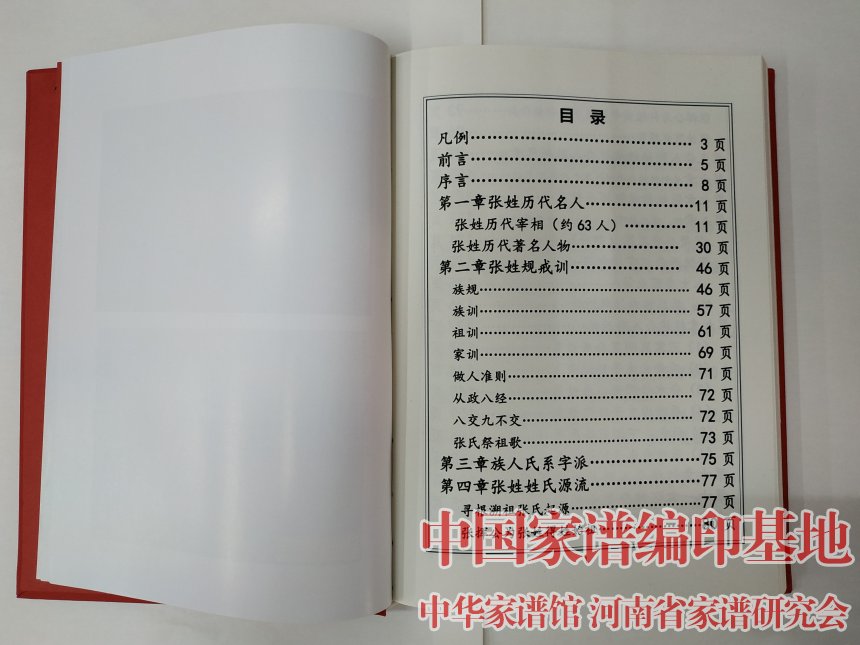 目 录
凡例………………………………… 3 页
前言………………………………… 5 页
序言………………………………… 8 页
第一章张姓历代名人………………… 11 页
张姓历代宰相（约63人）………… 11 页
张姓历代著名人物………………… 30 页
第二章张姓规戒训………………… 46 页
族规………………………………… 46 页
族训………………………………… 57 页
祖训………………………………… 61 页
家训………………………………… 69 页
做人准则…………………………… 71 页
从政八经…………………………… 72 页
八交九不交………………………… 72 页
张氏祭祖歌………………………… 73 页
第三章族人氏系字派……………… 75 页
第四章张姓姓氏源流……………… 77 页
寻根溯祖张氏起源………………… 77 页
中国家谱编印基地
中华家谱馆 河南省家谱研究会